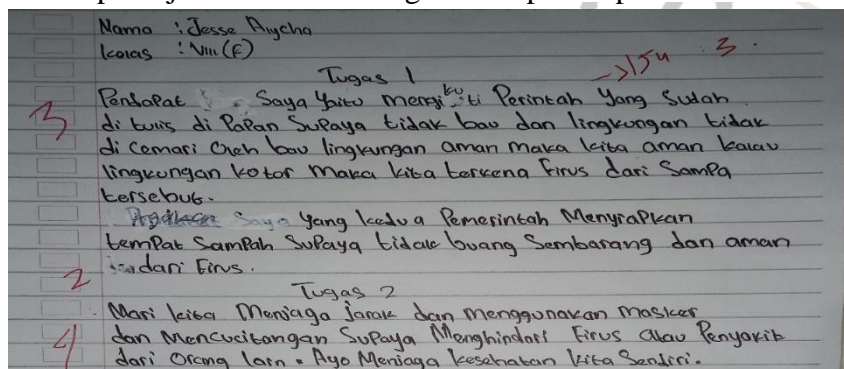 Nama : Jesse Aiycha
Kelas : VIII (F)
Tugas 1
→ 154 : 3 .
3
Pendapat Saya yaitu mengikuti Perintah Yang Sudah
di tulis di Papan Supaya tidak bau dan lingkungan tidak
di cemari Oleh bau lingkungan aman maka kita aman kalau
lingkungan kotor Maka kita terkena Firus dari Sampa
tersebut.
Saya yang kedua Pemerintah Menyiapkan
tempat Sampah Supaya tidak buang Sembarang dan aman
dari Firus.
2
Tugas 2
Mari kita Menjaga jarak dan menggunakan masker
4
dan Mencucitangan Supaya Menghindari Firus atau Penyakit
dari Orang lain. Ayo Menjaga kesehatan kita Sendiri.